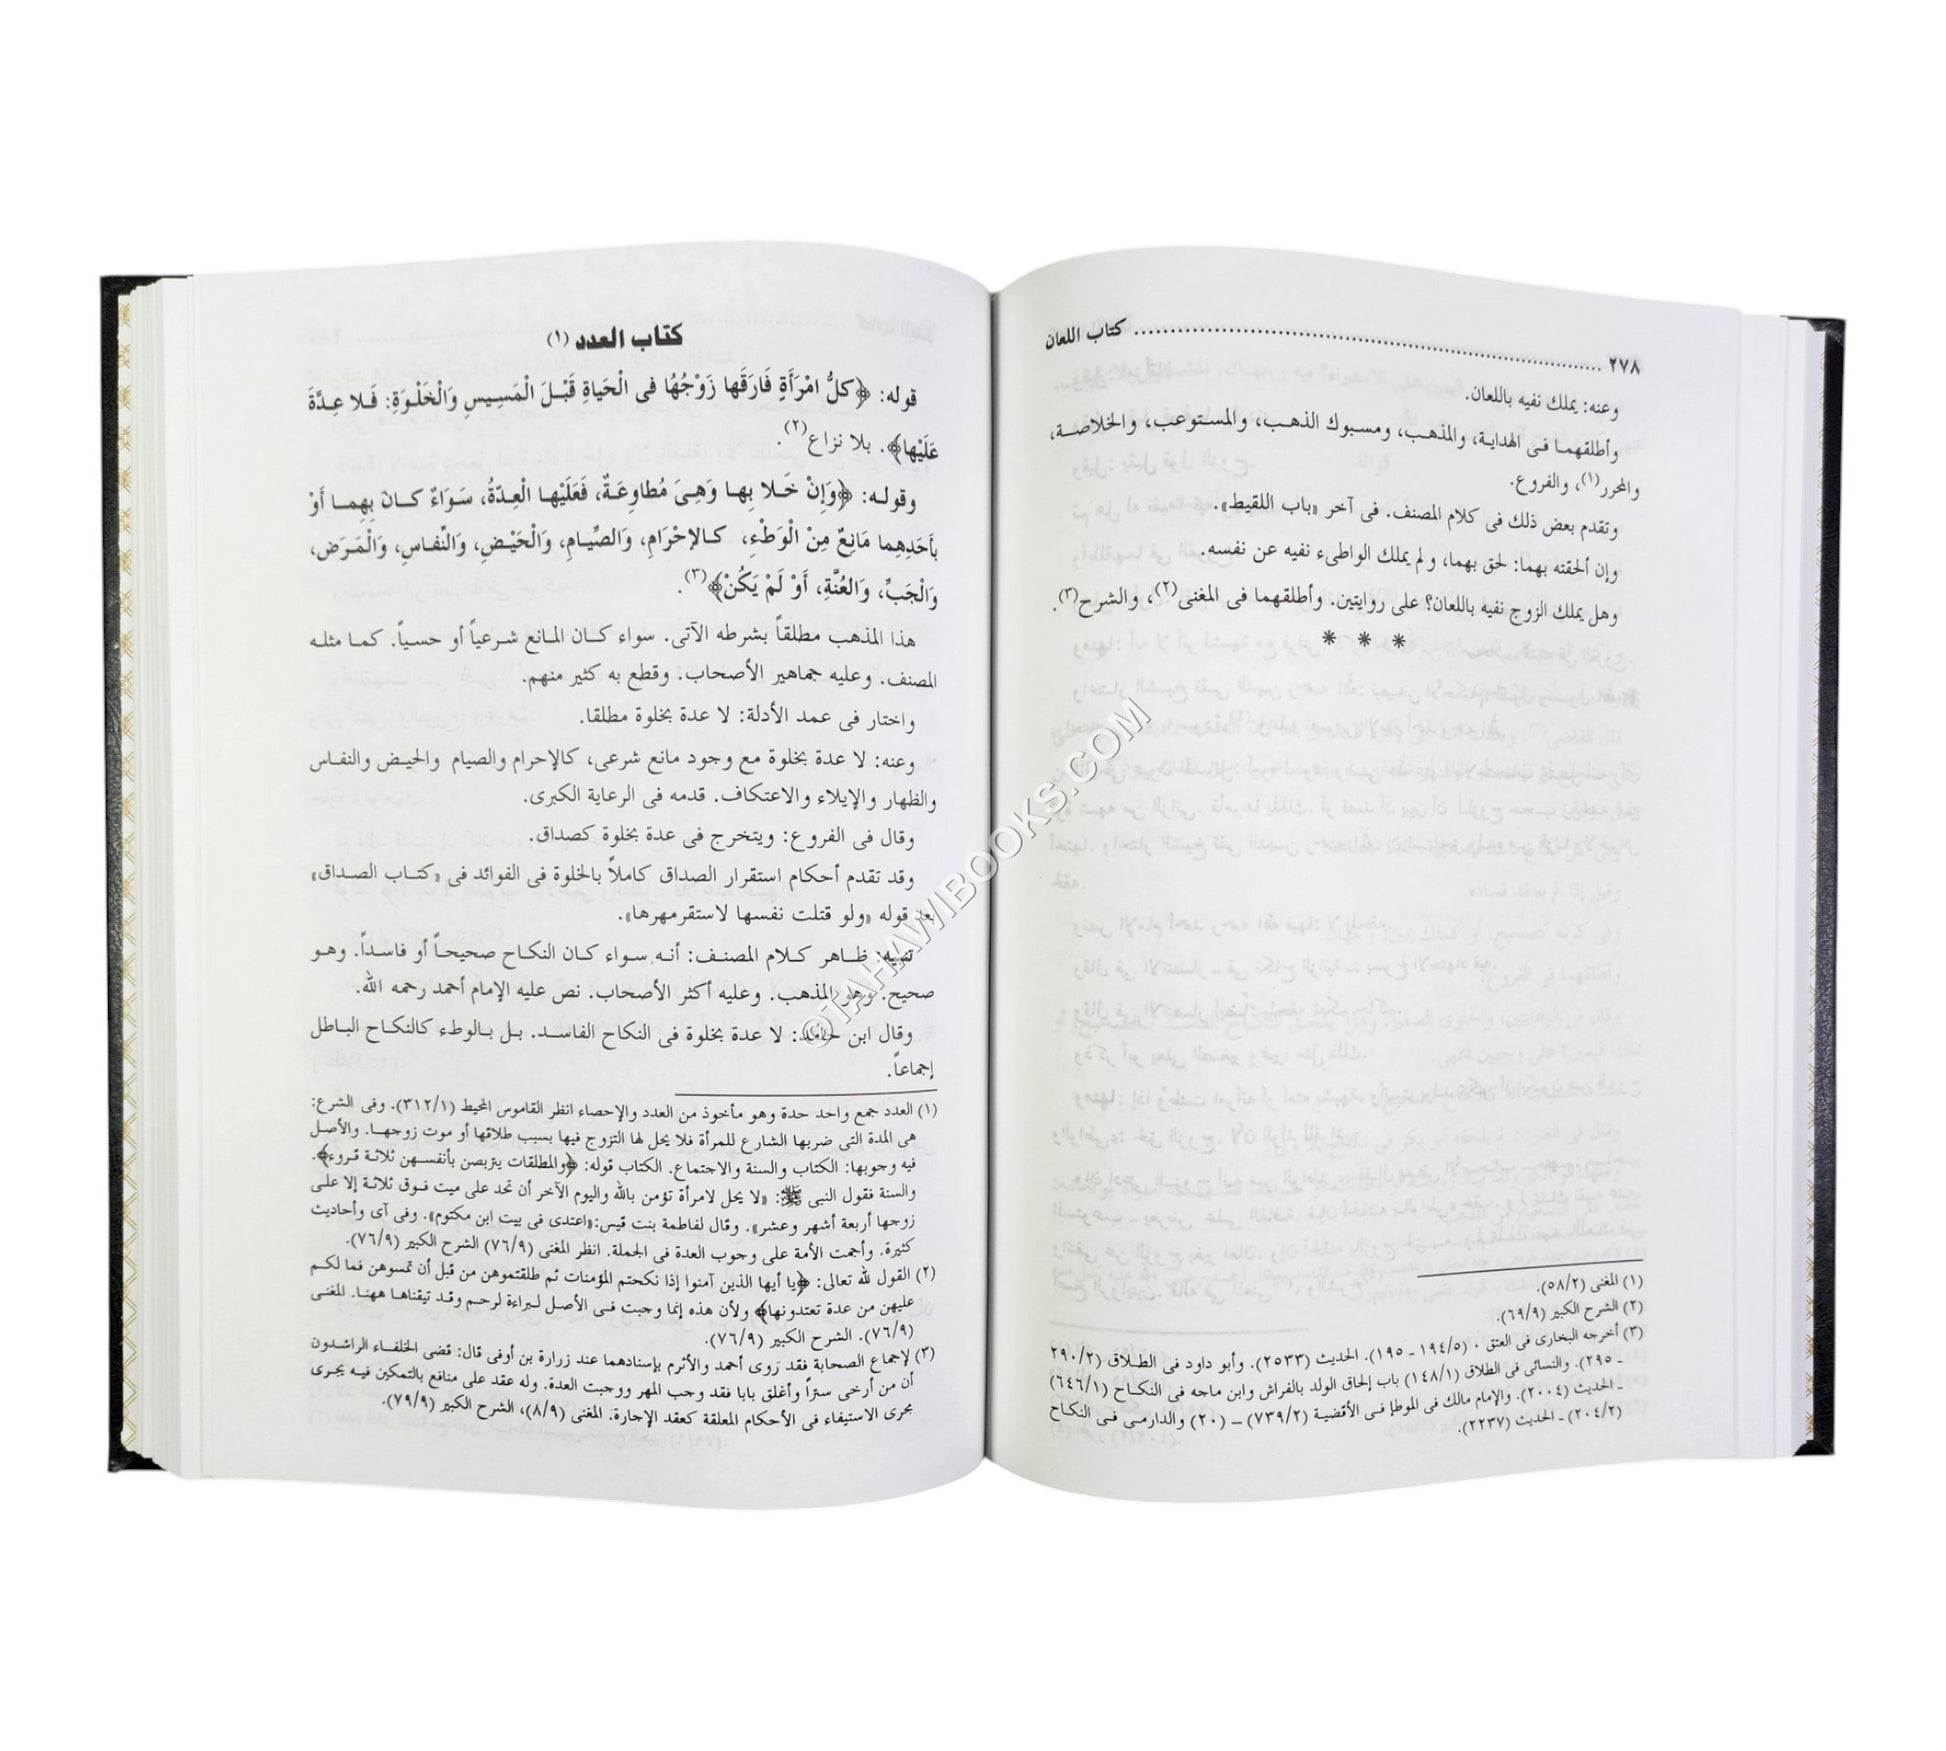 ٢٧٨ ........................................................ كتاب اللعان
وعنه: يملك نفيه باللعان.
وأطلقهما فى الهداية، والمذهب، ومسبوك الذهب، والمستوعب، والخلاصة،
والمحرر(١)، والفروع.
وتقدم بعض ذلك فى كلام المصنف. فى آخر «باب اللقيط».
وإن ألحقته بهما: لحق بهما، ولم يملك الواطىء نفيه عن نفسه.
وهل يملك الزوج نفيه باللعان؟ على روايتين. وأطلقهما فى المغنى(٢)، والشرح(٣).
* * *
(١) المغنى (٥٨/٢).
(٢) الشرح الكبير (٦٩/٩).
(٣) أخرجه البخارى فى العتق . (١٩٤/٥ ـ ١٩٥). الحديث (٢٥٣٣). وأبو داود فى الطلاق (٢٩٠/٢
ـ ٢٩٥). والنسائى فى الطلاق (١٤٨/١) باب إلحاق الولد بالفراش وابن ماجه فى النكاح (٦٤٦/١)
ـ الحديث (٢٠٠٤). والإمام مالك فى الموطإ فى الأقضية (٧٣٩/٢) – (٢٠) والدارمى فى النكاح
(٢٠٤/٢) ـ الحديث (٢٢٣٧).
كتاب العدد (١)
قوله: ﴿كلُّ امْرَأَةٍ فَارَقَها زَوْجُهُا فى الْحَياةِ قَبْلَ الْمَسِيسِ وَالْخَلْوَةِ: فَلا عِدَّةَ
عَلَيْها﴾. بلا نزاع(٢).
وقوله: ﴿وَإِنْ خَلا بِها وَهِىَ مُطاوِعَةٌ، فَعَلَيْها الْعِدّةُ، سَوَاءٌ كانَ بِهِما أَوْ
بأَحَدِهِما مَانِعٌ مِنْ الْوَطْءِ، كالإحْرَامِ، وَالصِّيامِ، وَالْحَيْضِ، وَالنِّفاسِ، وَالْمَرَض،
وَالْجَبِّ، وَالعُنَّةِ، أَوْ لَمْ يَكُنْ﴾(٣).
هذا المذهب مطلقاً بشرطه الآتى. سواء كان المانع شرعياً أو حسياً. كما مثله
المصنف. وعليه جماهير الأصحاب. وقطع به كثير منهم.
واختار فى عمد الأدلة: لا عدة بخلوة مطلقا.
وعنه: لا عدة بخلوة مع وجود مانع شرعى، كالإحرام والصيام والحيض والنفاس
والظهار والإيلاء والاعتكاف. قدمه فى الرعاية الكبرى.
وقال فى الفروع: ويتخرج فى عدة بخلوة كصداق.
وقد تقدم أحكام استقرار الصداق كاملاً بالخلوة فى الفوائد فى «كتاب الصداق»
بعد قوله «ولو قتلت نفسها لاستقرمهرها».
تنبيه: ظاهر كلام المصنف: أنه سواء كان النكاح صحيحاً أو فاسداً. وهو
صحيح. وهو المذهب. وعليه أكثر الأصحاب. نص عليه الإمام أحمد رحمه الله.
وقال ابن حامد: لا عدة بخلوة فى النكاح الفاسد. بل بالوطء كالنكاح الباطل
إجماعاً.
(١) العدد جمع واحد حدة وهو مأخوذ من العدد والإحصاء انظر القاموس المحيط (٣١٢/١). وفى الشرع:
هى المدة التى ضربها الشارع للمرأة فلا يحل لها التزوج فيها بسبب طلاقها أو موت زوجها. والأصل
فيه وجوبها: الكتاب والسنة والاجتماع. الكتاب قوله: ﴿والمطلقات يتربصن بأنفسهن ثلاثة قروء﴾.
والسنة فقول النبى ﷺ: «لا يحل لامرأة تؤمن بالله واليوم الآخر أن تحد على ميت فوق ثلاثة إلا على
زوجها أربعة أشهر وعشر». وقال لفاطمة بنت قيس:«اعتدى فى بيت ابن مكتوم». وفى آى وأحاديث
كثيرة. وأجمت الأمة على وجوب العدة فى الجملة. انظر المغنى (٧٦/٩) الشرح الكبير (٧٦/٩).
(٢) القول لله تعالى: ﴿يا أيها الذين آمنوا إذا نكحتم المؤمنات ثم طلقتموهن من قبل أن تمسوهن فما لكم
عليهن من عدة تعتدونها﴾ ولأن هذه إنما وجبت فى الأصل لبراءة لرحم وقد تيقناها ههنا. المغنى
(٧٦/٩). الشرح الكبير (٧٦/٩).
(٣) لإجماع الصحابة فقد رَوى أحمد والأثرم بإسنادهما عند زرارة بن أوفى قال: قضى الخلفاء الراشدون
أن من أرخى ستراً وأغلق بابا فقد وجب المهر ووجبت العدة. وله عقد على منافع بالتمكين فيه يجرى
بحرى الاستيفاء فى الأحكام المعلقة كعقد الإجارة. المغنى (٨/٩)، الشرح الكبير (٧٩/٩).
©TAHAWIBOOKS.COM